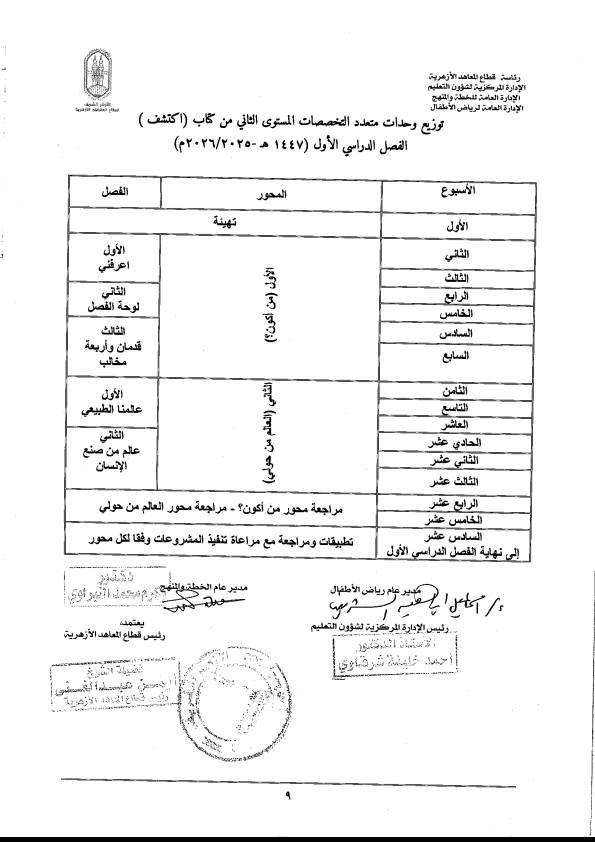 رئاسة قطاع المعاهد الأزهرية
الإدارة المركزية لشؤون التعليم
الإدارة العامة للخطة والمنهج
الإدارة العامة لرياض الأطفال
الأزهر الشريف
قطاع المعاهد الأزهرية
توزيع وحدات متعدد التخصصات المستوى الثاني من كتاب (اكتشف )
الفصل الدراسي الأول (١٤٤٧ هـ -٢٠٢٦/٢٠٢٥م)
الأسبوع المحور الفصل
الأول تهيئة
الثاني
الثالث
الرابع
الخامس
السادس
السابع
الأول (من أكون؟)
الأول
اعرفني
الثاني
لوحة الفصل
الثالث
قدمان وأربعة
مخالب
الثامن
التاسع
العاشر
الحادي عشر
الثاني عشر
الثالث عشر
الثاني (العالم من حولي)
الأول
عالمنا الطبيعي
الثاني
عالم من صنع
الإنسان
الرابع عشر
الخامس عشر
مراجعة محور من أكون؟ - مراجعة محور العالم من حولي
السادس عشر
إلى نهاية الفصل الدراسي الأول
تطبيقات ومراجعة مع مراعاة تنفيذ المشروعات وفقا لكل محور
مدير عام رياض الأطفال
مدير عام الخطة والمنهج
دكتور
محمد
رئيس الإدارة المركزية لشؤون التعليم
الأستاذ الدكتور
احمد خليفة شرقاوي
يعتمد،
رئيس قطاع المعاهد الأزهرية
فضيلة الشيخ
رئيس قطاع المعاهد الأزهرية
٩